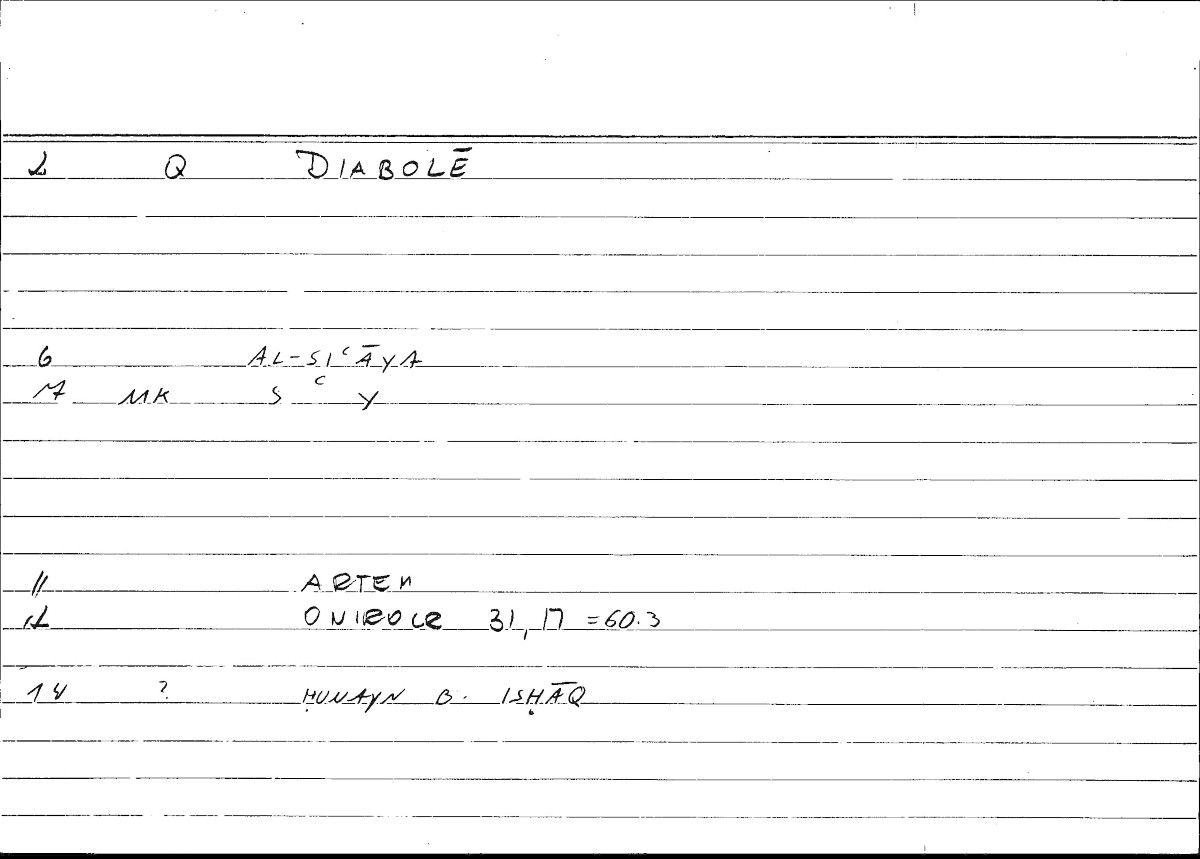 2 Q DIABOLĒ
6 AL-SIʿĀYA
7 MK S ʿ Y
11 ARTEM
12 ONIROCR 31,17 =60.3
14 ? ḤUNAYN B. ISḤĀQ